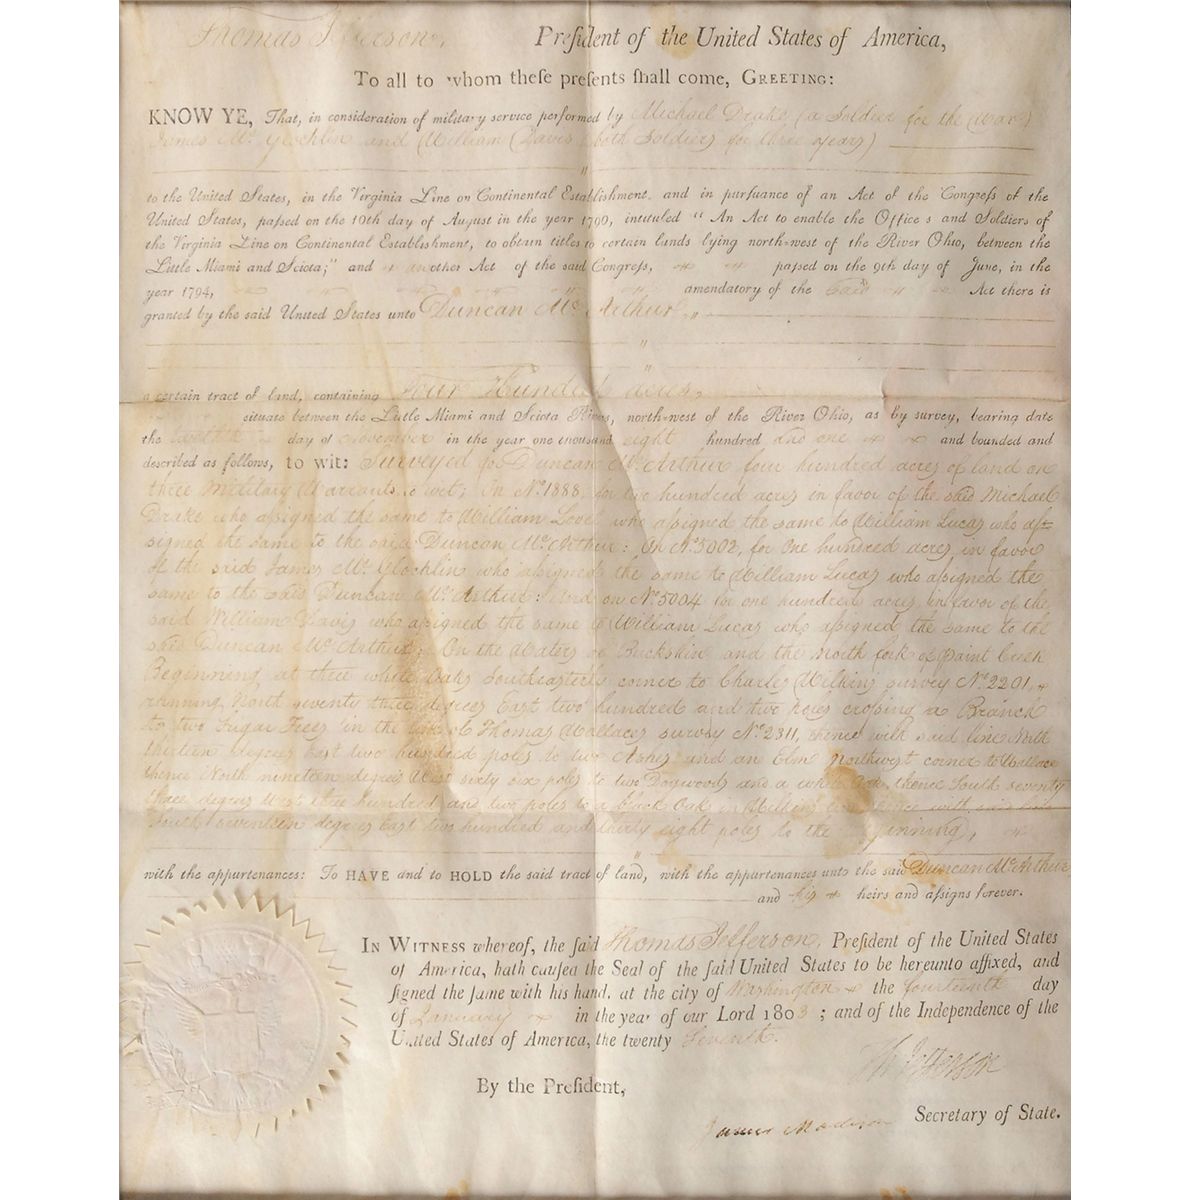 Thomas Jefferson, Preſident of the United States of America,
To all to whom theſe preſents ſhall come, GREETING:
KNOW YE, That, in conſideration of military service performed by Michael Drake (a Soldier for the War)
James Mc Glochlin and William Davis (both Soldiers for three years)
to the United States, in the Virginia Line on Continental Establishment, and in purſuance of an Act of the Congreſs of the
United States, paſsed on the 10th day of August in the year 1790, intituled "An Act to enable the Office s and Soldiers of
the Virginia Line on Continental Establishment, to obtain titles to certain lands lying north-west of the River Ohio, between the
Little Miami and Sciota;" and another Act of the said Congreſs, paſsed on the 9th day of June, in the
year 1794, amendatory of the said Act there is
granted by the said United States unto Duncan Mc Arthur,
a certain tract of land, containing Four Hundred acres,
situate between the Little Miami and Sciota Rivers, north-west of the River Ohio, as by survey, bearing date
the twelfth day of November in the year one thousand eight hundred and one and bounded and
described as follows, to wit: Surveyed for Duncan Mc Arthur four hundred acres of land on
three Military Warrants to wit; On No. 1888, for two hundred acres in favor of the said Michael
Drake who aſsigned the same to William Lovel who aſsigned the same to William Lucas who aſ-
signed the same to the said Duncan Mc Arthur: On No. 5002, for one hundred acres in favor
of the said James Mc Glochlin who aſsigned the same to William Lucas who aſsigned the
same to the said Duncan Mc Arthur: And on No. 5004 for one hundred acres in favor of the
said William Davis who aſsigned the same to William Lucas who aſsigned the same to the
said Duncan Mc Arthur; On the Waters of Buckskin and the North fork of Paint Creek
Beginning at three white Oaks Southeasterly corner to Charles Wilkins survey No. 2201,
running North seventy three degrees East two hundred and two poles croſsing a Branch
to two Sugar Trees in the line of Thomas Wallaces survey No. 2311, thence with said line North
thirteen degrees East two hundred poles to two Ashes and an Elm Northwest corner to Wallace
thence North nineteen degrees West sixty six poles to two Dogwoods and a white Oak, thence South seventy
three degrees West three hundred and two poles to a black Oak in Wilkins line thence with said line
South seventeen degrees East two hundred and thirty eight poles to the ginning,
with the appurtenances: To HAVE and to HOLD the said tract of land, with the appurtenances unto the said Duncan Mc Arthur
and his heirs and aſsigns forever.
IN WITNESS whereof, the ſaid Thomas Jefferson, Preſident of the United States
of America, hath cauſed the Seal of the ſaid United States to be hereunto affixed, and
ſigned the ſame with his hand, at the city of Washington the fourteenth day
of January in the year of our Lord 1803; and of the Independence of the
United States of America, the twenty Seventh.
Th Jefferson
By the Preſident,
James Madison Secretary of State.